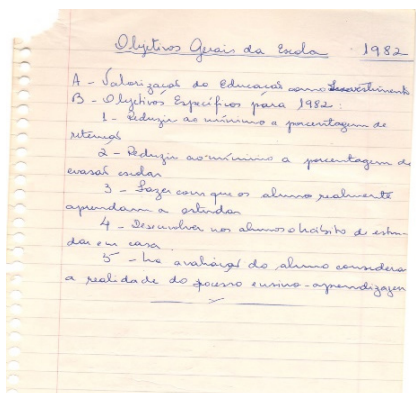 Objetivos Gerais da Escola 1982
A - Valorização da Educação como Investimento
B - Objetivos Específicos para 1982:
1 - Reduzir ao mínimo a porcentagem de
retenção
2 - Reduzir ao mínimo a porcentagem de
evasão escolar
3 - Fazer com que os alunos realmente
aprendam a estudar
4 - Desenvolver nos alunos o hábito de estu-
dar em casa
5 - Na avaliação do aluno considerar
a realidade do processo ensino-aprendizagem